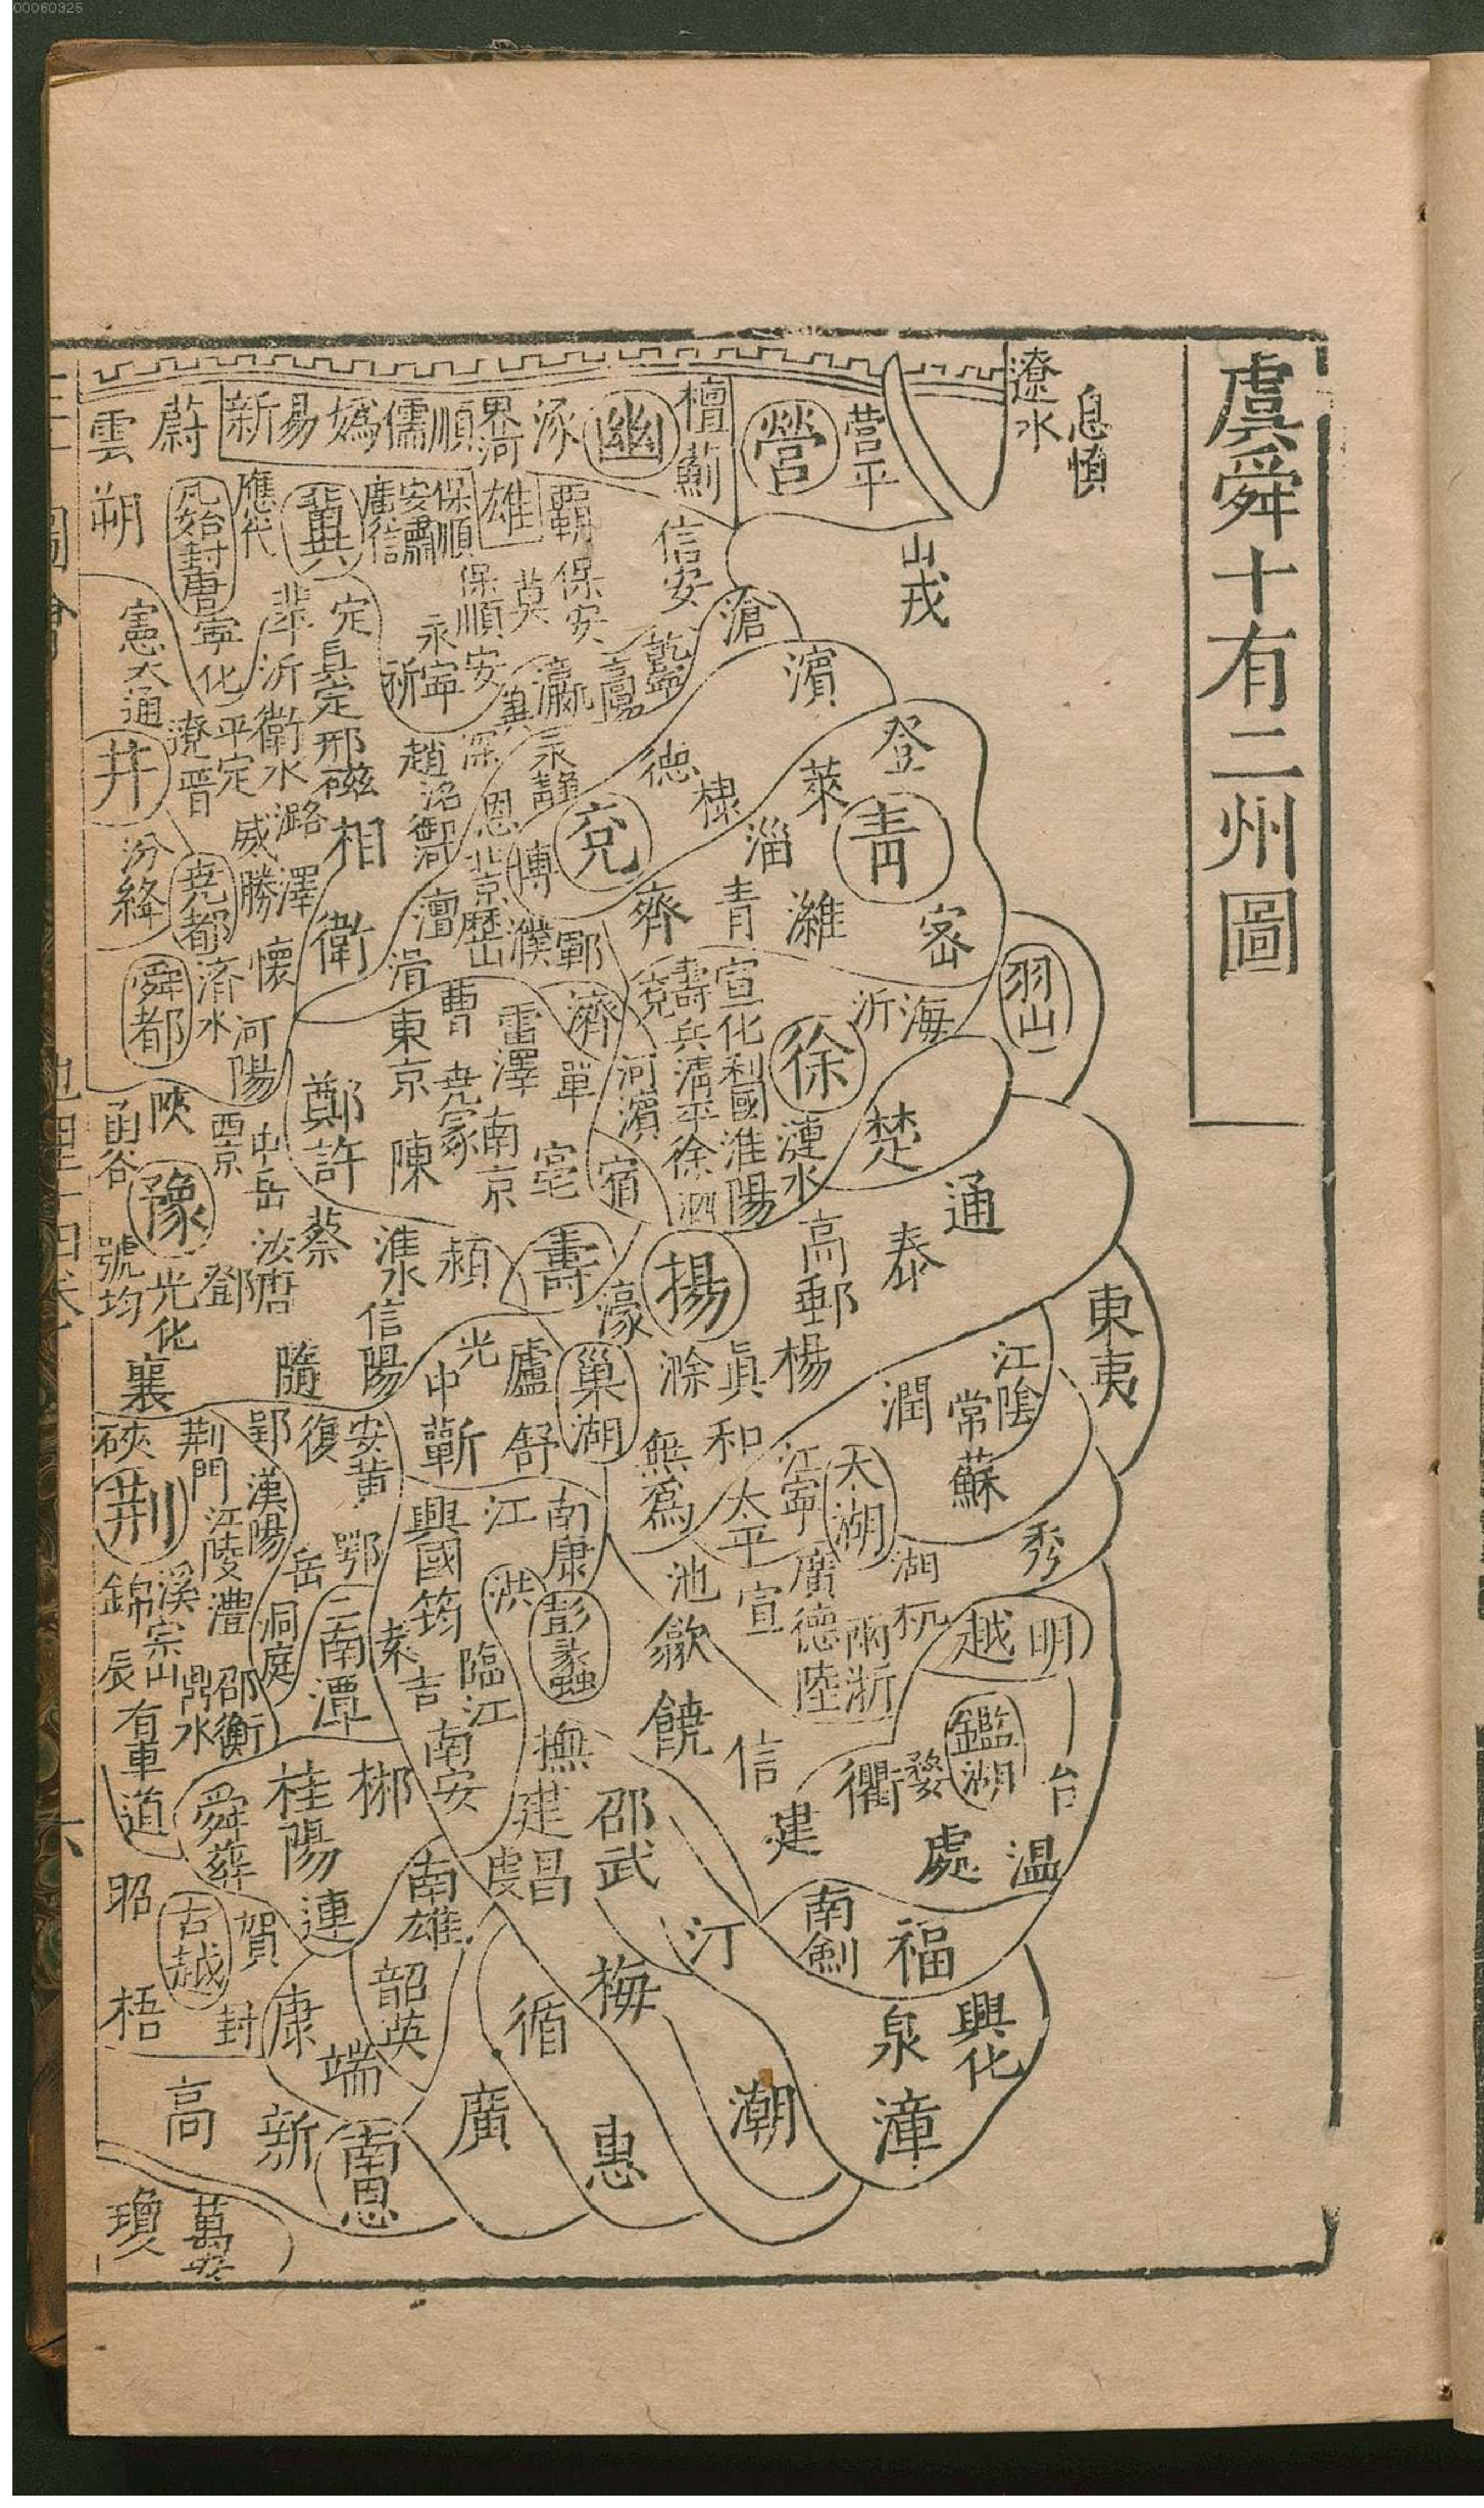 00060325
虞舜十有二州圖
遼水
息慎
山戎
營
營平
檀
薊
幽
涿
界河
順
儒
媯
易
新
蔚
雲
朔
應代
冀
廣信
安肅
保順
雄
霸
信安
保安
莫
保順
永寧
安
祁
定
真定
邢
磁
相
衛
憲
寧化
平定
遼
晉
衛水
潞
威勝
澤
懷
汾
絳
堯都
舜都
濟水
河陽
趙
洺
深
瀛
永靜
恩
北京
博
兗
德
棣
滄
濱
登
萊
淄
青
青
濰
密
齊
澶
滑
濮
鄆
歷山
濟
曹
雷澤
單
東京
堯冢
南京
亳
陳
鄭
許
宣化
利國
淮陽
清平
徐
泗
河濱
宿
徐
沂
海
羽山
漣水
楚
通
泰
高郵
揚
東夷
函谷
陝
西京
中岳
豫
虢
均
光化
鄧
汝
唐
蔡
淮水
潁
壽
濠
信陽
隨
襄
光
廬
巢湖
滁
真
楊
和
無為
舒
蘄
潤
常
江陰
蘇
太湖
江寧
太平
廣德
宣
池
歙
饒
湖
秀
杭
兩浙
睦
越
明
鑑湖
台
婺
衢
處
温
信
建
峽
荆門
荆
郢
復
安
黃
漢陽
江陵
澧
岳
鄂
洞庭
二南
潭
興國
江
南康
筠
洪
彭蠡
臨江
袁
吉
南安
撫
建昌
虔
邵武
錦
溪
辰
鼎水
邵
衡
有車道
舜葬
桂陽
郴
昭
古越
賀
連
南雄
韶
英
梧
封
康
端
高
新
南恩
廣
循
惠
梅
汀
潮
南劍
福
興化
泉
漳
瓊
萬安